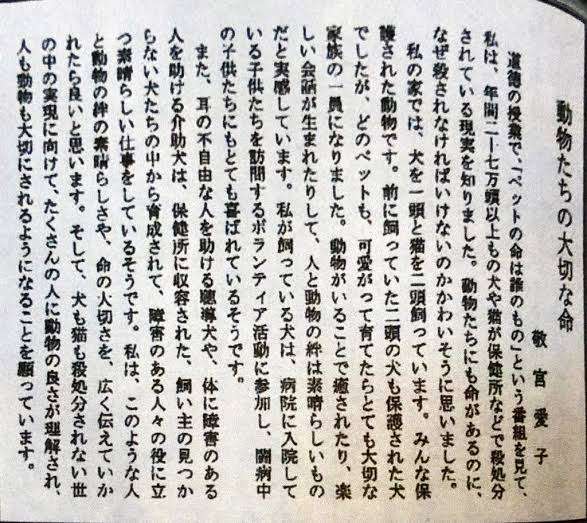 動物たちの大切な命
敬宮愛子
道徳の授業で、「ペットの命は誰のもの」という番組を見て、
私は、年間二十七万頭以上もの犬や猫が保健所などで殺処分
されている現実を知りました。動物たちにも命があるのに、
なぜ殺されなければいけないのかかわいそうに思いました。
私の家では、犬を一頭と猫を二頭飼っています。みんな保
護された動物です。前に飼っていた二頭の犬も保護された犬
でしたが、どのペットも、可愛がって育てたらとても大切な
家族の一員になりました。動物がいることで癒されたり、楽
しい会話が生まれたりして、人と動物の絆は素晴らしいもの
だと実感しています。私が飼っている犬は、病院に入院して
いる子供たちを訪問するボランティア活動に参加し、闘病中
の子供たちにもとても喜ばれているそうです。
また、耳の不自由な人を助ける聴導犬や、体に障害のある
人を助ける介助犬は、保健所に収容された、飼い主の見つか
らない犬たちの中から育成されて、障害のある人々の役に立
つ素晴らしい仕事をしているそうです。私は、このような人
と動物の絆の素晴らしさや、命の大切さを、広く伝えていか
れたら良いと思います。そして、犬も猫も殺処分されない世
の中の実現に向けて、たくさんの人に動物の良さが理解され、
人も動物も大切にされるようになることを願っています。